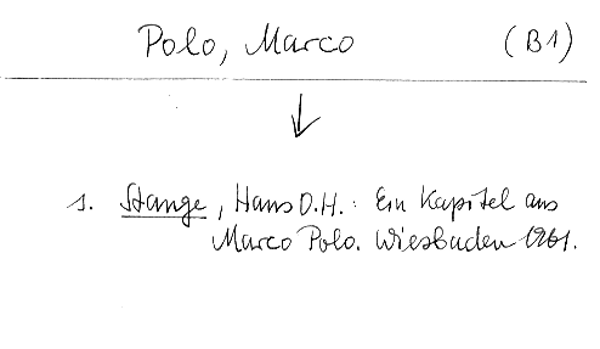 Polo, Marco (B1)
s. Stange, Hans O.H.: Ein Kapitel aus
Marco Polo. Wiesbaden 1961.